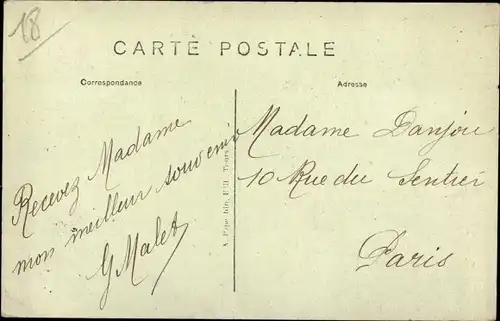 18
CARTE POSTALE
Correspondance
Adresse
Recevez Madame
mon meilleur souvenir
G Malet
Madame Danjou
10 Rue du Sentier
Paris
Tours